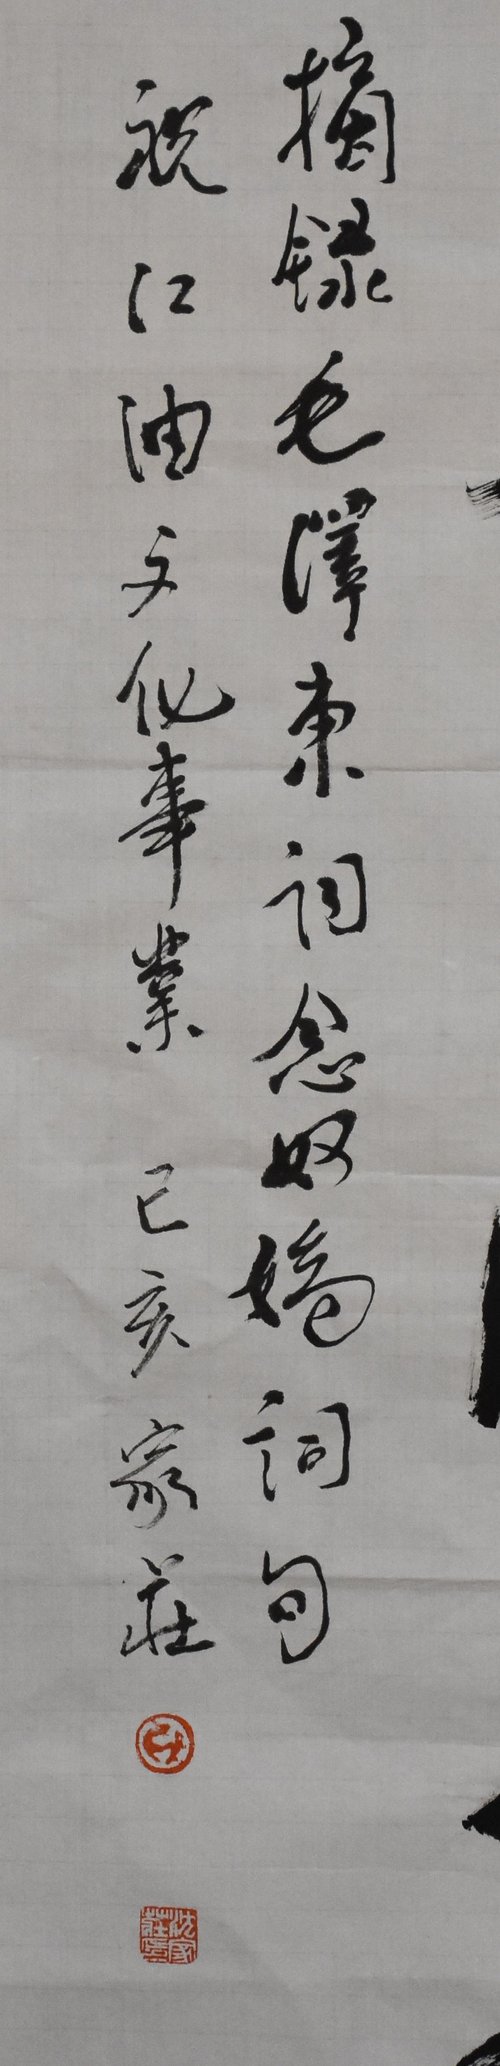 摘錄毛澤東詞念奴嬌詞句
祝江油文化事業 己亥家莊
沈家莊